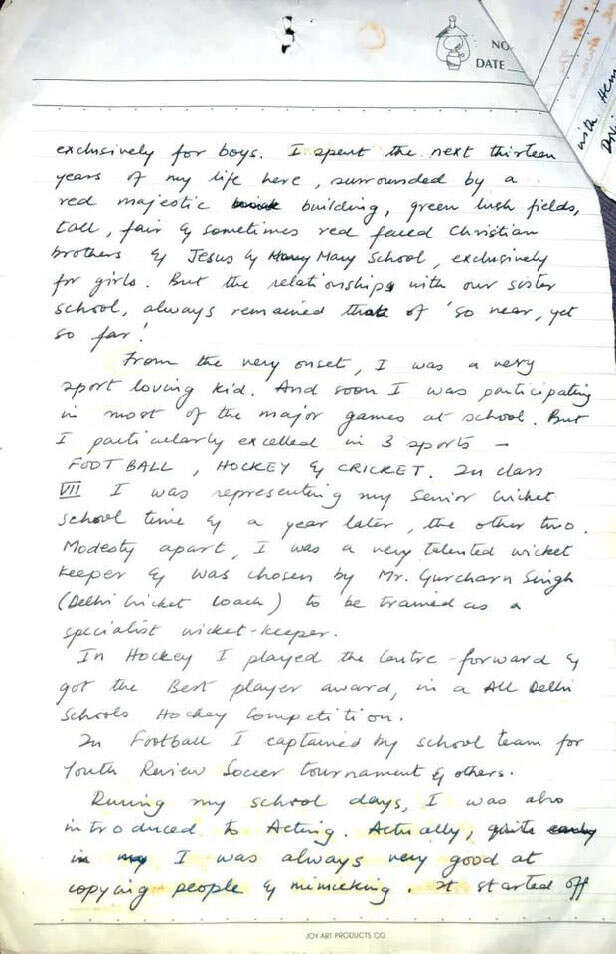 NO
DATE
with
exclusively for boys. I spent the next thirteen
years of my life here, surrounded by a
red majestic building, green lush fields,
tall, fair & sometimes red faced Christian
brothers & Jesus & Mary School, exclusively
for girls. But the relationships with our sister
school, always remained that of 'so near, yet
so far'.
From the very onset, I was a very
sport loving kid. And soon I was participating
in most of the major games at school. But
I particularly excelled in 3 sports –
FOOTBALL, HOCKEY & CRICKET. In class
VII I was representing my Senior Cricket
school time & a year later, the other two.
Modesty apart, I was a very talented wicket
keeper & was chosen by Mr. Gurcharn Singh
(Delhi Cricket Coach) to be trained as a
specialist wicket-keeper.
In Hockey I played the Centre-forward &
got the Best player award, in a All Delhi
Schools Hockey Competition.
In Football I captained by school team for
Youth Review Soccer tournament & others.
During my school days, I was also
introduced to Acting. Actually, quite early
in my I was always very good at
copying people & mimicking. It started off
JOY ART PRODUCTS CO